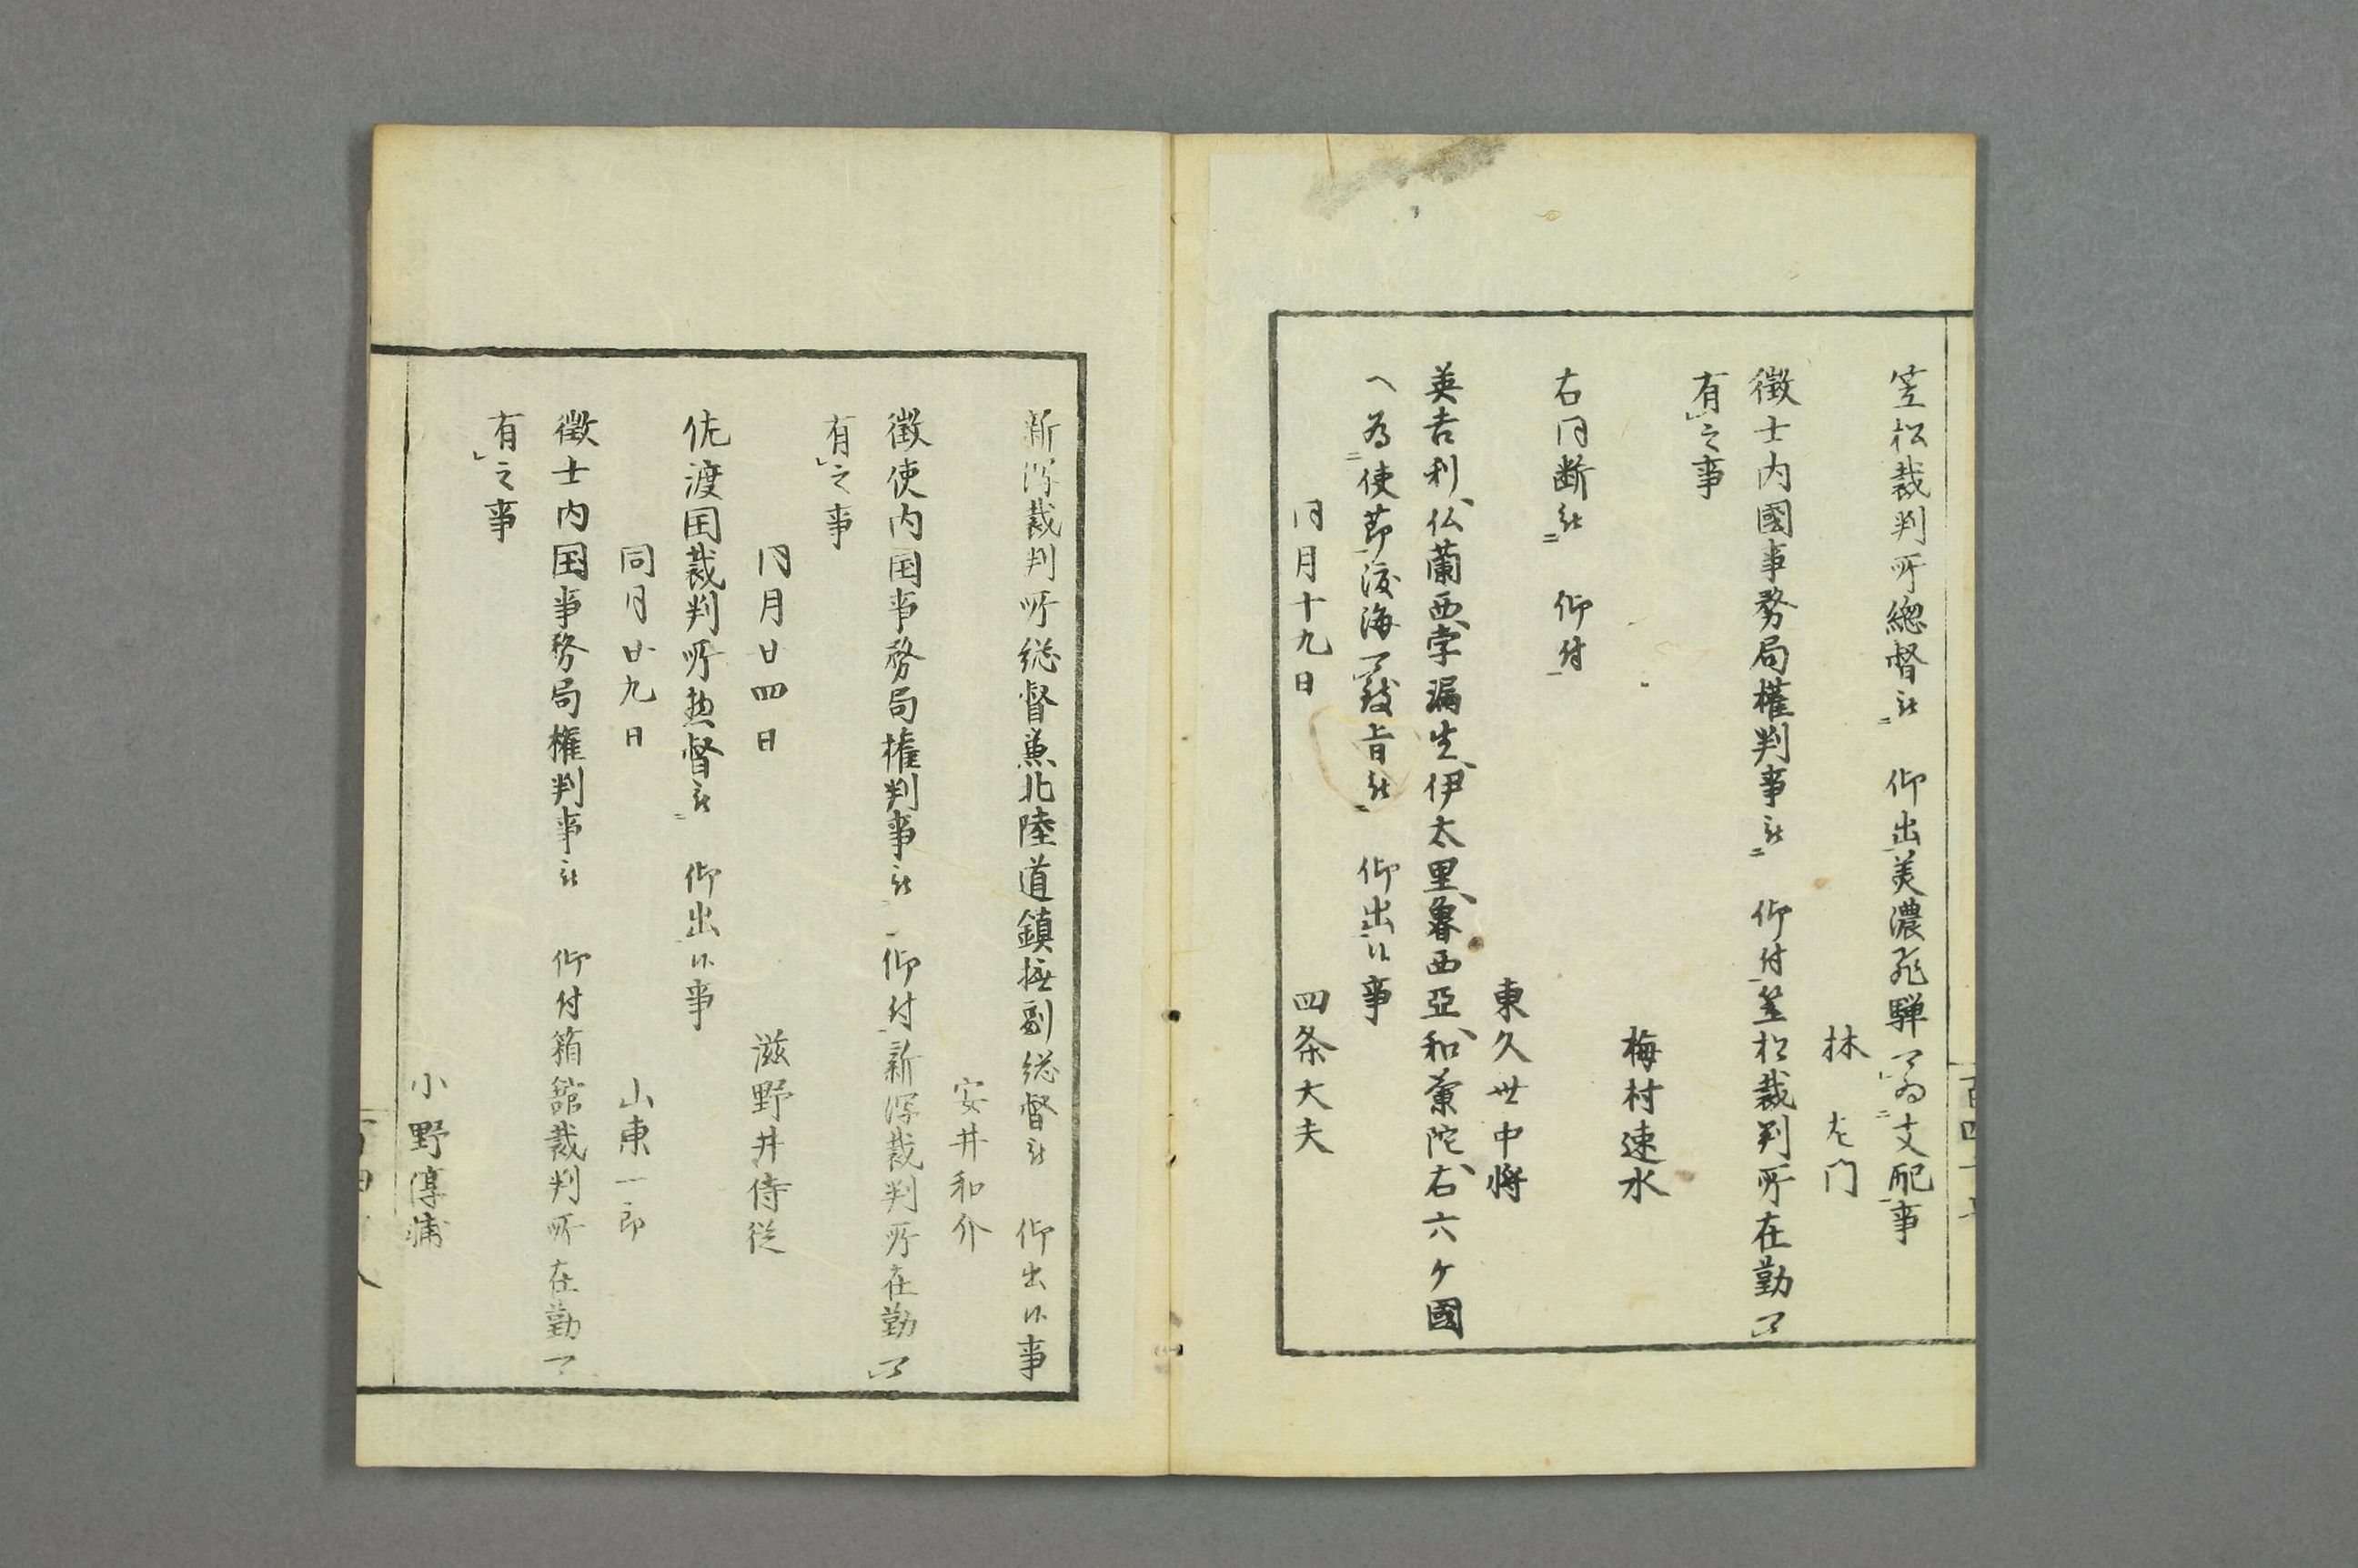 笠松裁判所總督被 仰出美濃飛騨可為支配事
林 左門
徴士内國事務局權判事被 仰付笠松裁判所在勤可
有之事
梅村速水
右同断被 仰付
東久世中将
英吉利、仏蘭西、孛漏生、伊太里、魯西亞、和蘭陀、右六ケ國
ヘ為使節渡海可致旨被 仰出候事
同月十九日 四条大夫
新潟裁判所総督兼北陸道鎮撫副総督被 仰出候事
安井和介
徴使内国事務局権判事被 仰付新潟裁判所在勤可
有之事
同月廿四日 滋野井侍従
佐渡国裁判所惣督被 仰出候事
同月廿九日 山東一郎
徴士内国事務局権判事被 仰付箱館裁判所在勤可
有之事
小野淳浦